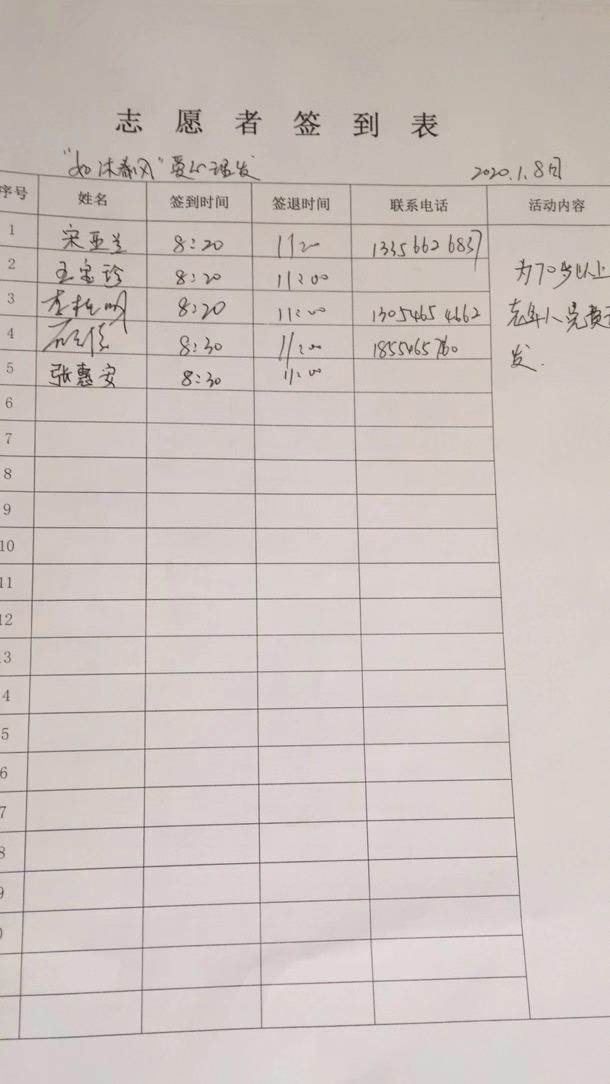 志愿者签到表
"如沐春风"爱心理发 2020.1.8日
序号 姓名 签到时间 签退时间 联系电话 活动内容
1 宋亚兰 8:20 11:20 13356626837
2 王宝珍 8:20 11:00 为70岁以上
3 8:20 11:00 13054654662 老年人免费
4 8:30 11:00 发.
5 张惠安 8:30 11:00
6
7
8
9
10
11
12
13
4
5
6
7
8
9